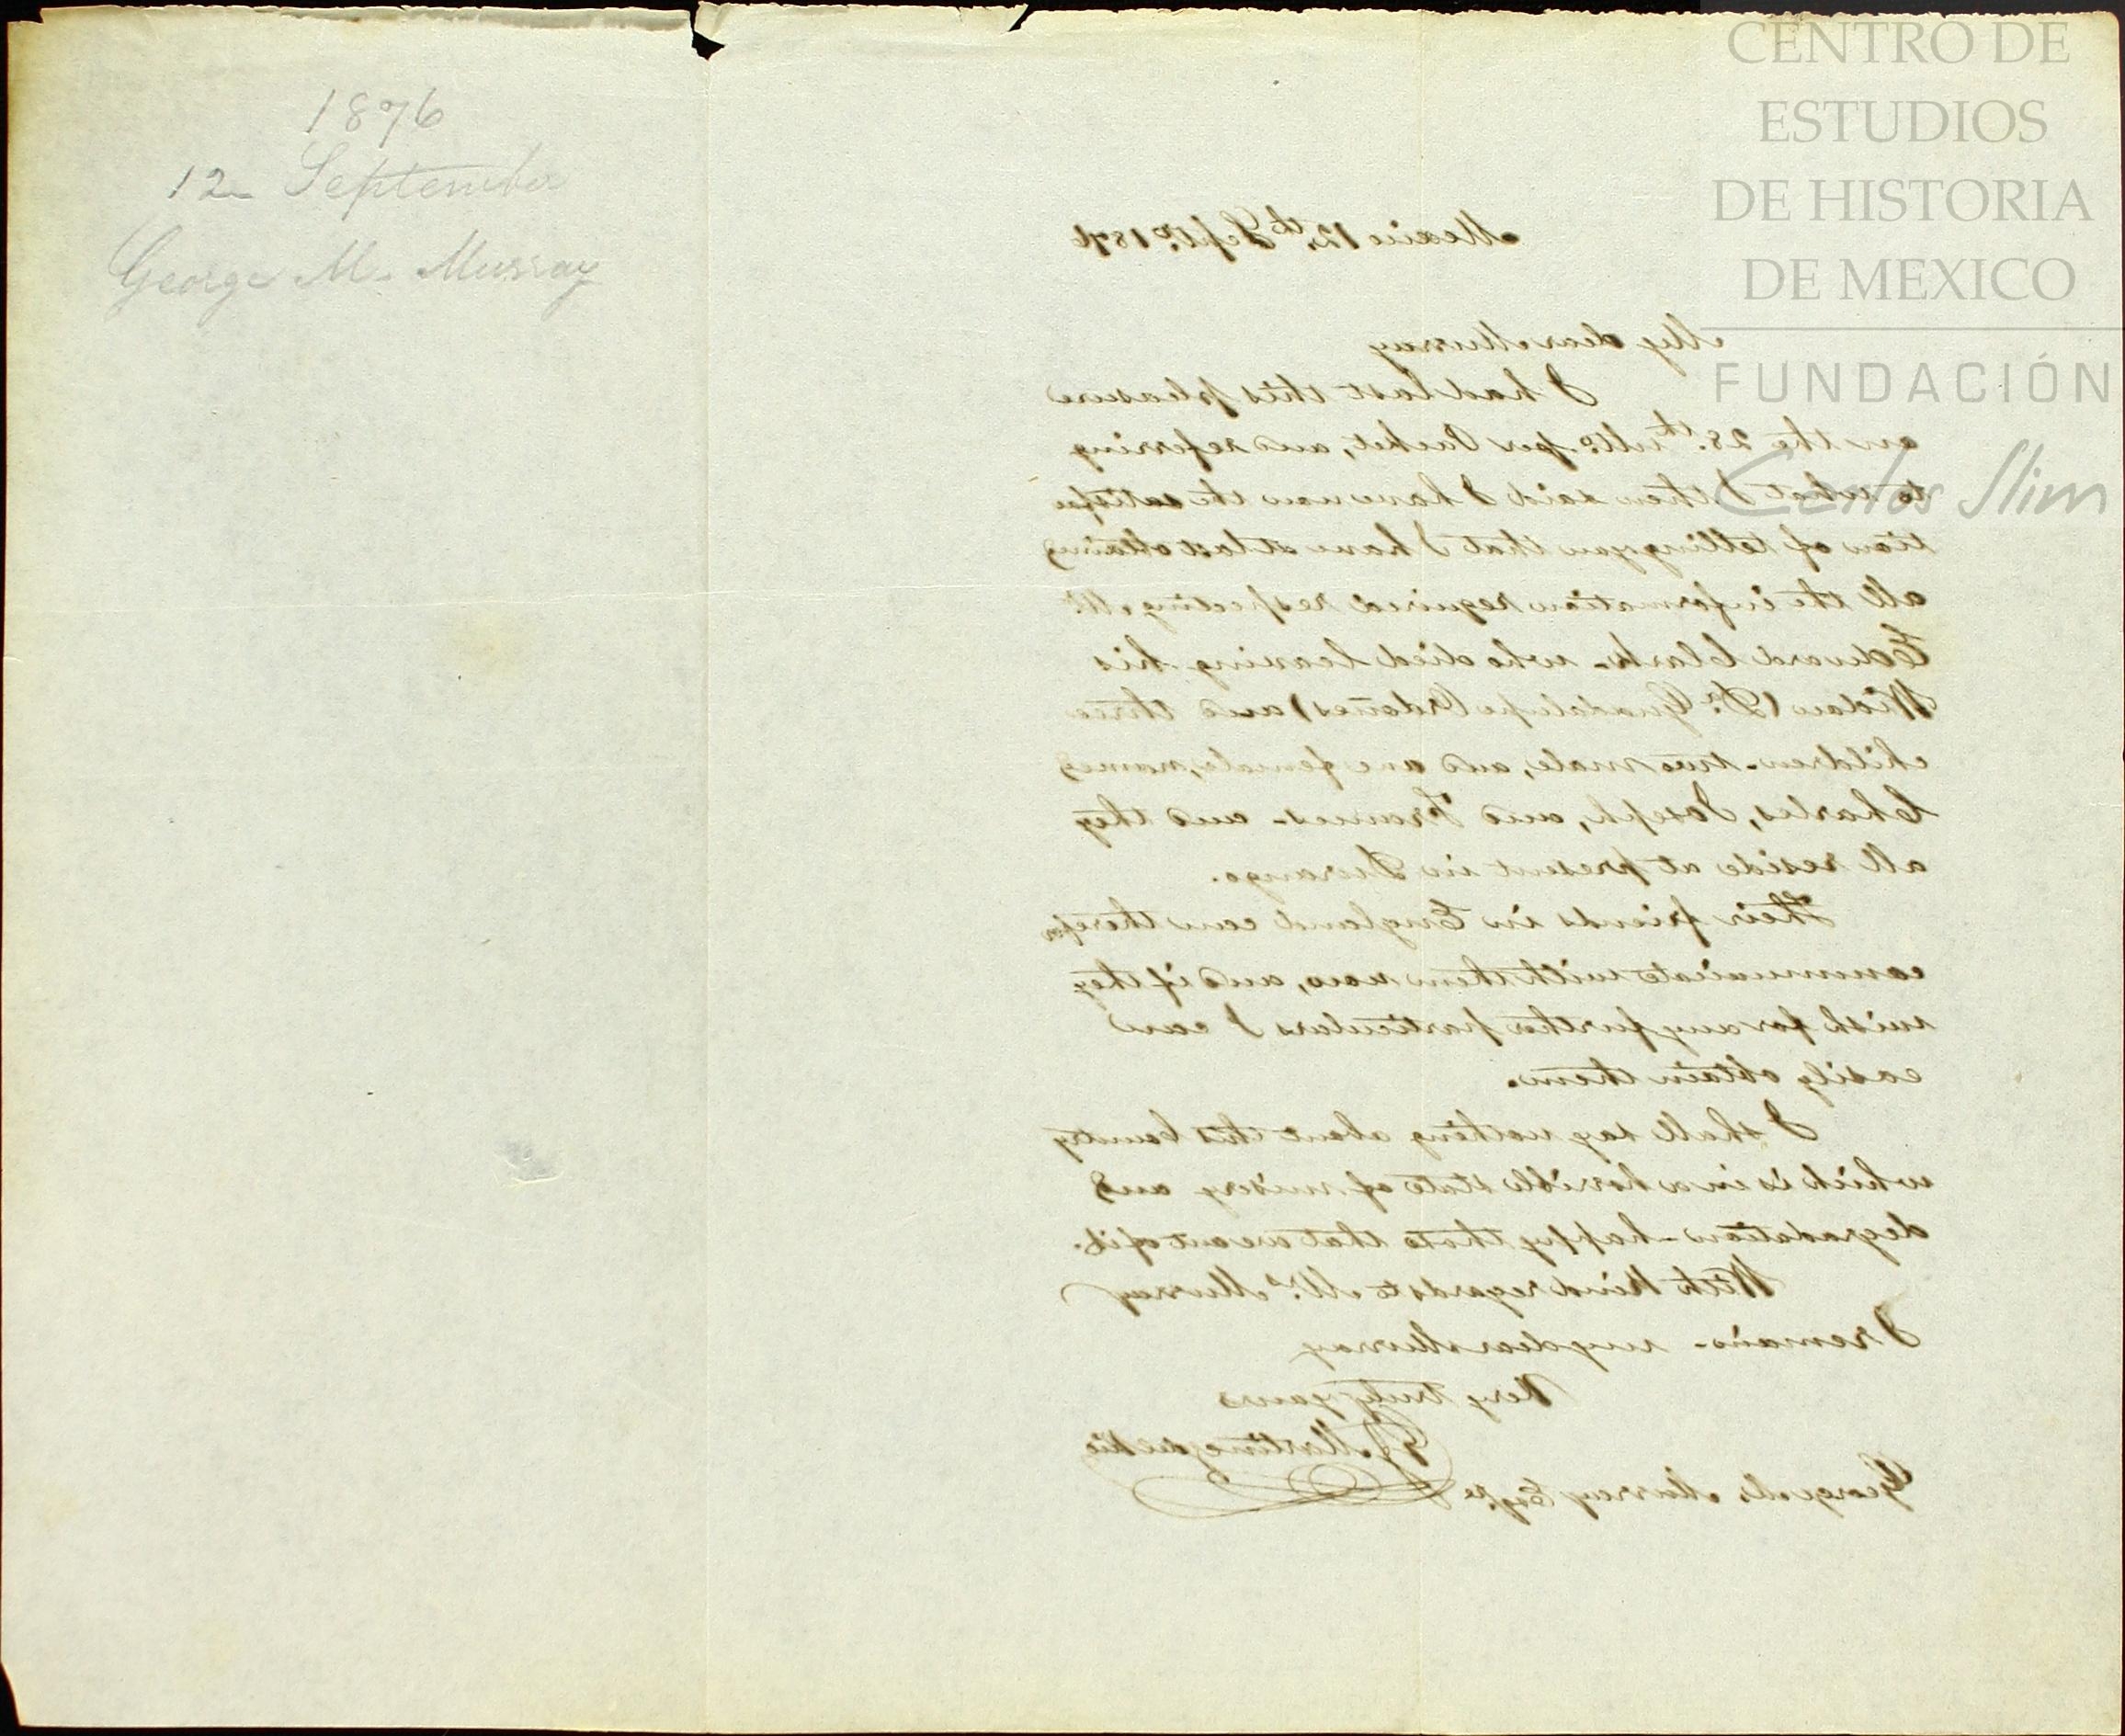 1876
12 September
George M. Murray
CENTRO DE
ESTUDIOS
DE HISTORIA
DE MEXICO
FUNDACIÓN
Carlos Slim
Mexico 12th Septr. 1876
My dear Murray
I had last this pleasure
on the 28th ulto. per Packet, and referring
to what I then said I have now the satisfac
tion of telling you that I have at last obtained
all the information required respecting Mr.
Edward Clark - who died leaving his
Widow (Da. Guadalupe Ordoñes) and three
children - two male, and one female, named
Charles, Joseph, and Frances - and they
all reside at present in Durango.
Their friends in England can therefore
communicate with them now, and if they
wish for any further particulars I can
easily obtain them.
I shall say nothing about this Country
which is in a horrible state of misery and
degradation - happy those that are out of it.
With kind regards to Mrs. Murray
I remain - my dear Murray
Very truly yours
George M. Murray Esqe.